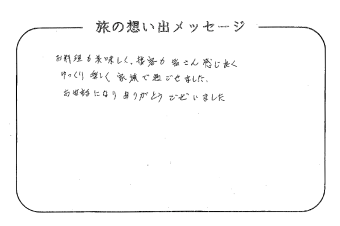 旅の想い出メッセージ
お料理も美味しく、接客も皆さん感じ良く
ゆっくり楽しく家族で過ごせました。
お世話になりありがとうございました